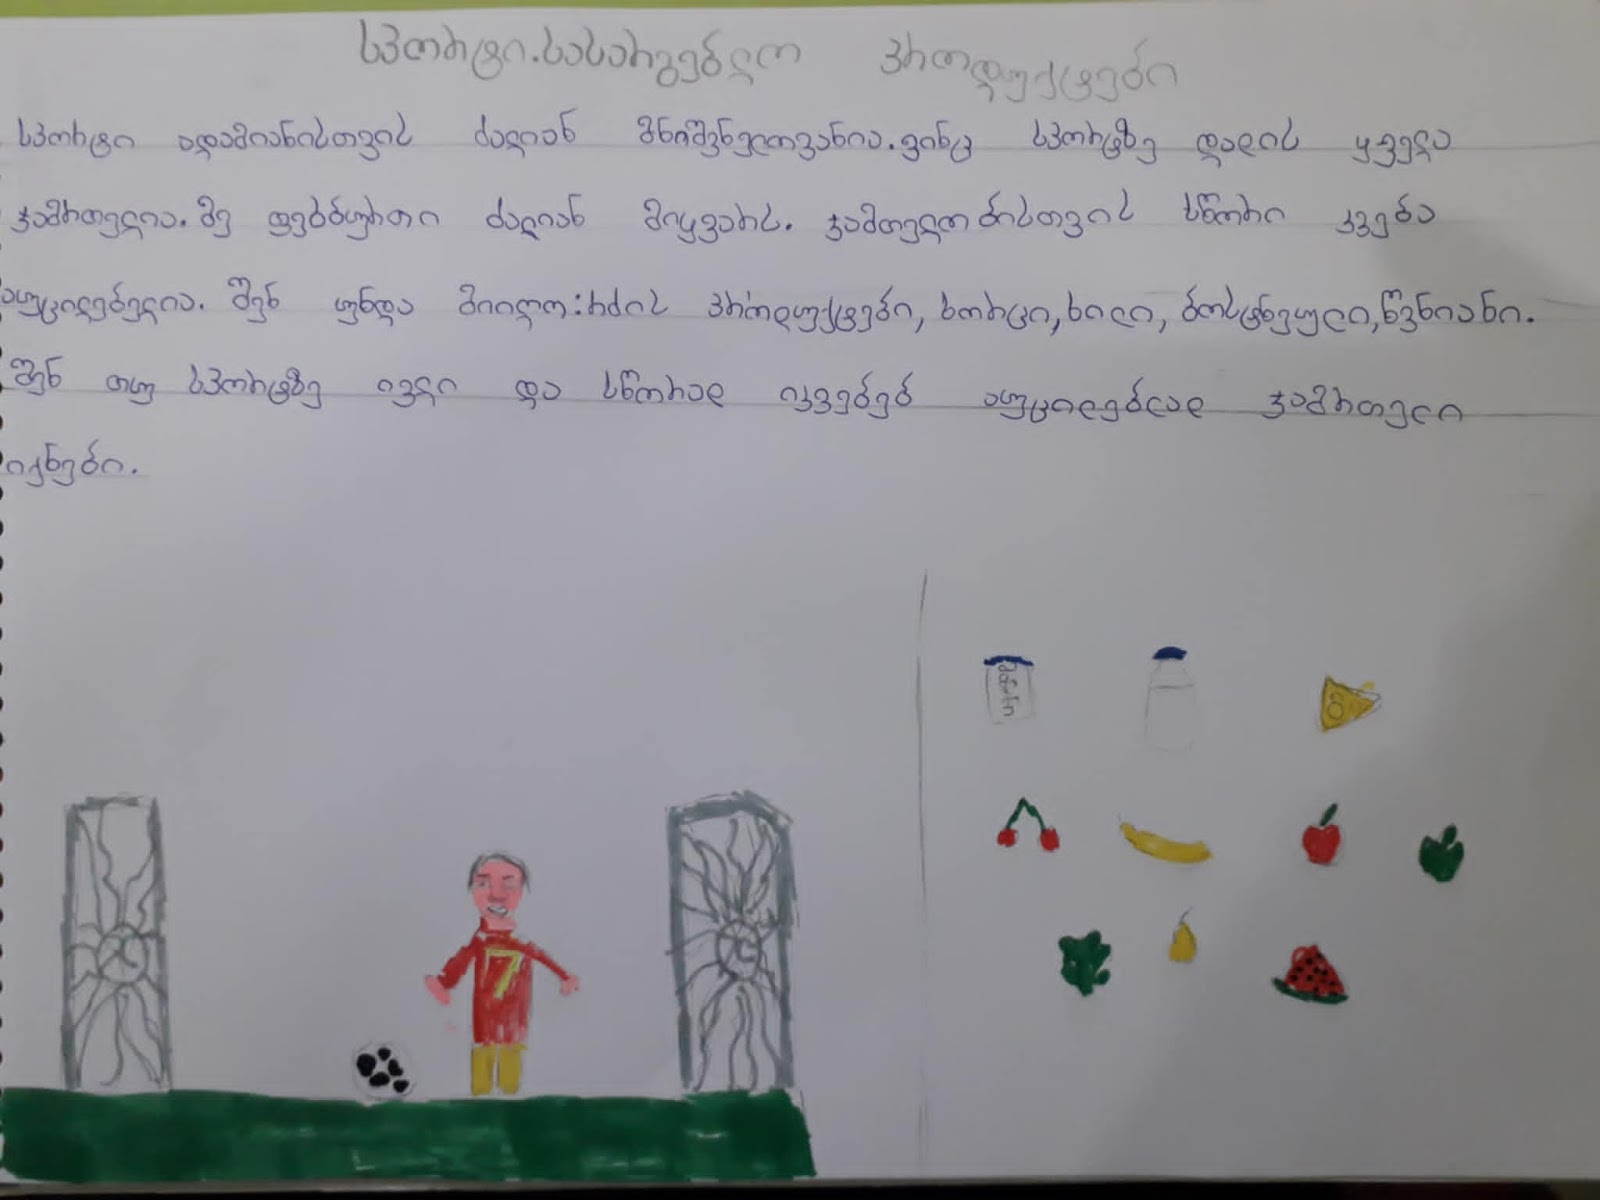 სპორტი.სასარგებლო პროდუქტები
სპორტი ადამიანისთვის ძალიან მნიშვნელოვანია.ვინც სპორტზე დადის ყველა
ჯამრთელია. მე ფეხბურთი ძალიან მიყვარს. ჯამთელობისთვის სწორი კვება
აუცილებელია. შენ უნდა მიიღო:რძის პროდუქტები, ხორცი,ხილი, ბოსტნეული,წვნიანი.
შენ თუ სპორტზე ივლი და სწორად იკვებებ აუცილებლად ჯამრთელი
იქნები.
7